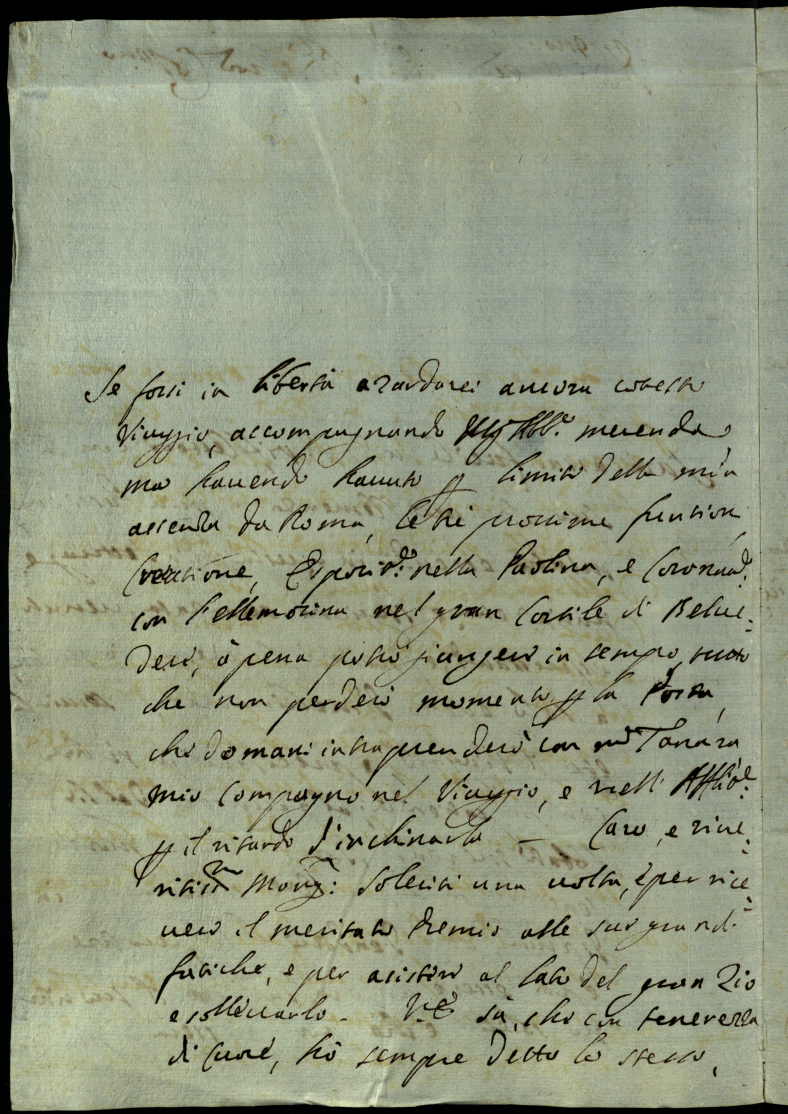 Se fossi in libertà azardarei ancora cotesto
Viaggio, accompagnando Abb.e merenda,
ma hauendo hauuto p limite della mia
assenza da Roma, le tre prossime funtioni,
Creatione, Esposit.e nella Paolina, e Coronat.e
con l'ellemosina nel gran Cortile di Belue-
dere, à pena potrò giungere in tempo, tutto
che non perderò momento p la Posta,
che domani intraprenderò con m.r Tanara
mio Compagno nel Viaggio, e resti
p il ritardo d'inchinarla — Caro, e riue-
ritiss.mo Mong.r: soleciti una uolta, e per rice-
uere il meritato Premio alle sue grandi
fatiche, e per assistere al lato del gran Zio
e solleuarlo - V.E. sà, che con tenerezza
di Cuore, hò sempre detto lo stesso,